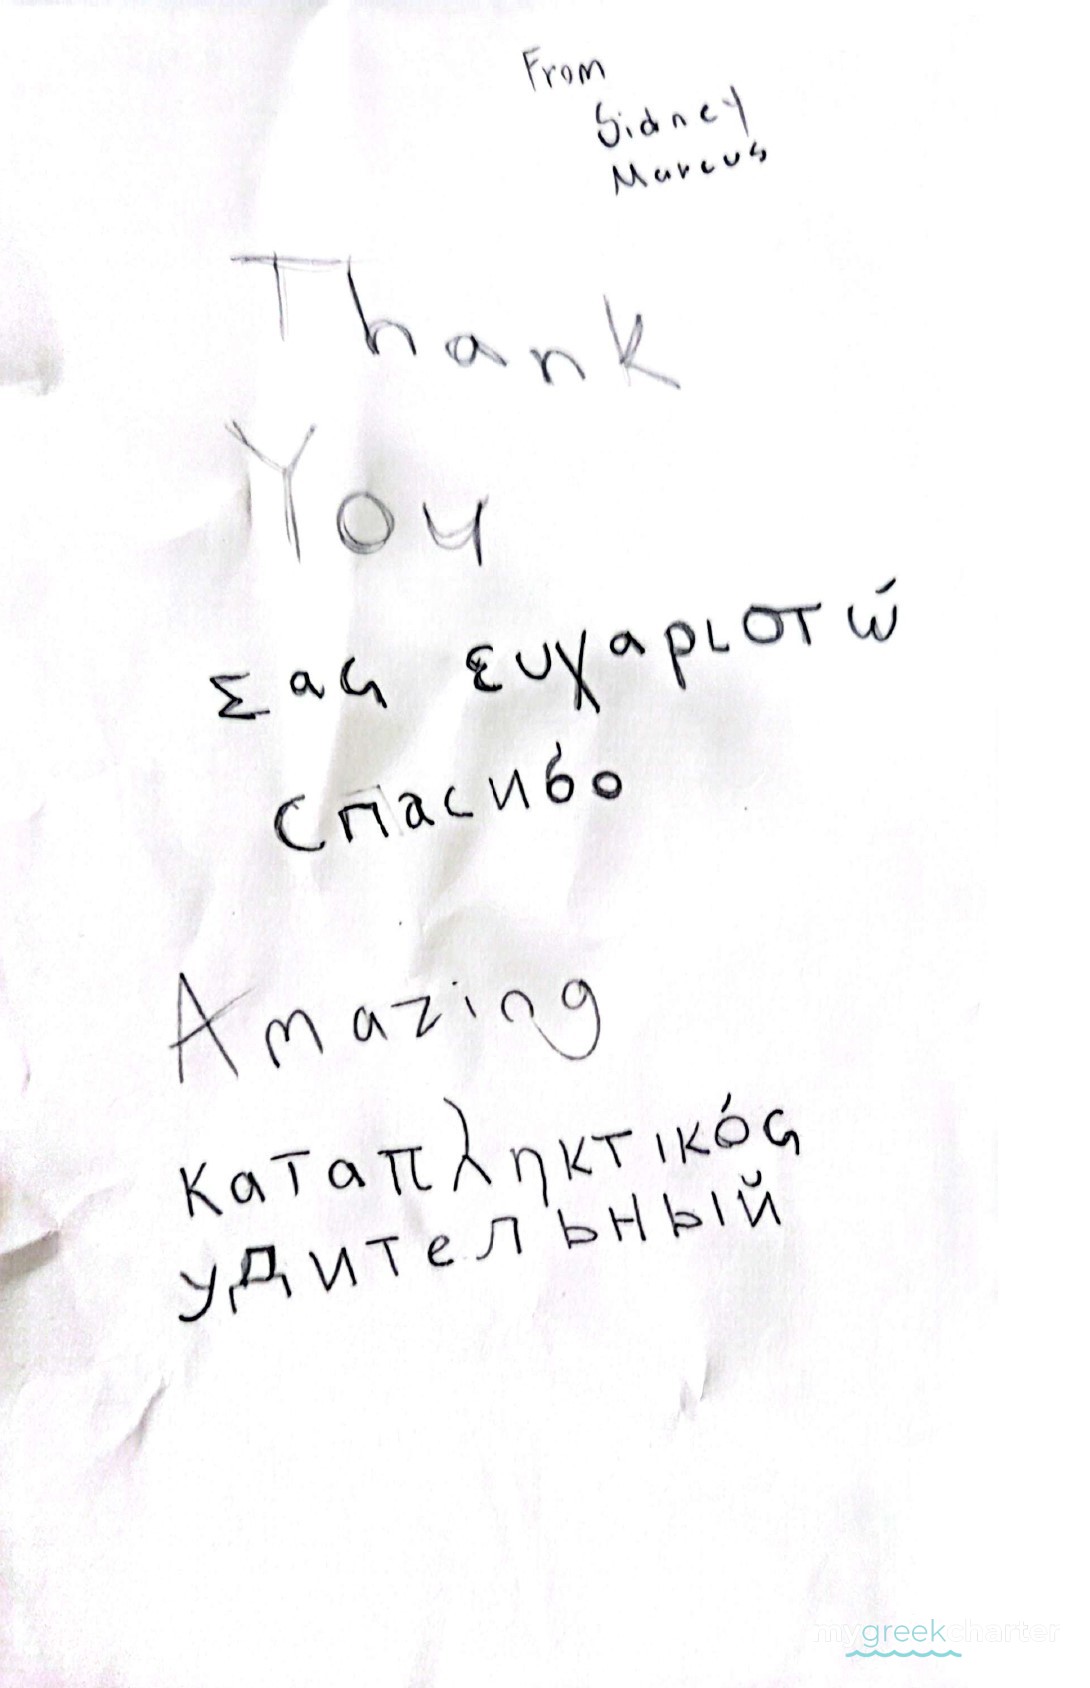 From
Sidney
Marcus
Thank
You
Σας ευχαριστώ
Спасибо
Amazing
καταπληκτικός
удительный
mygreekcharter